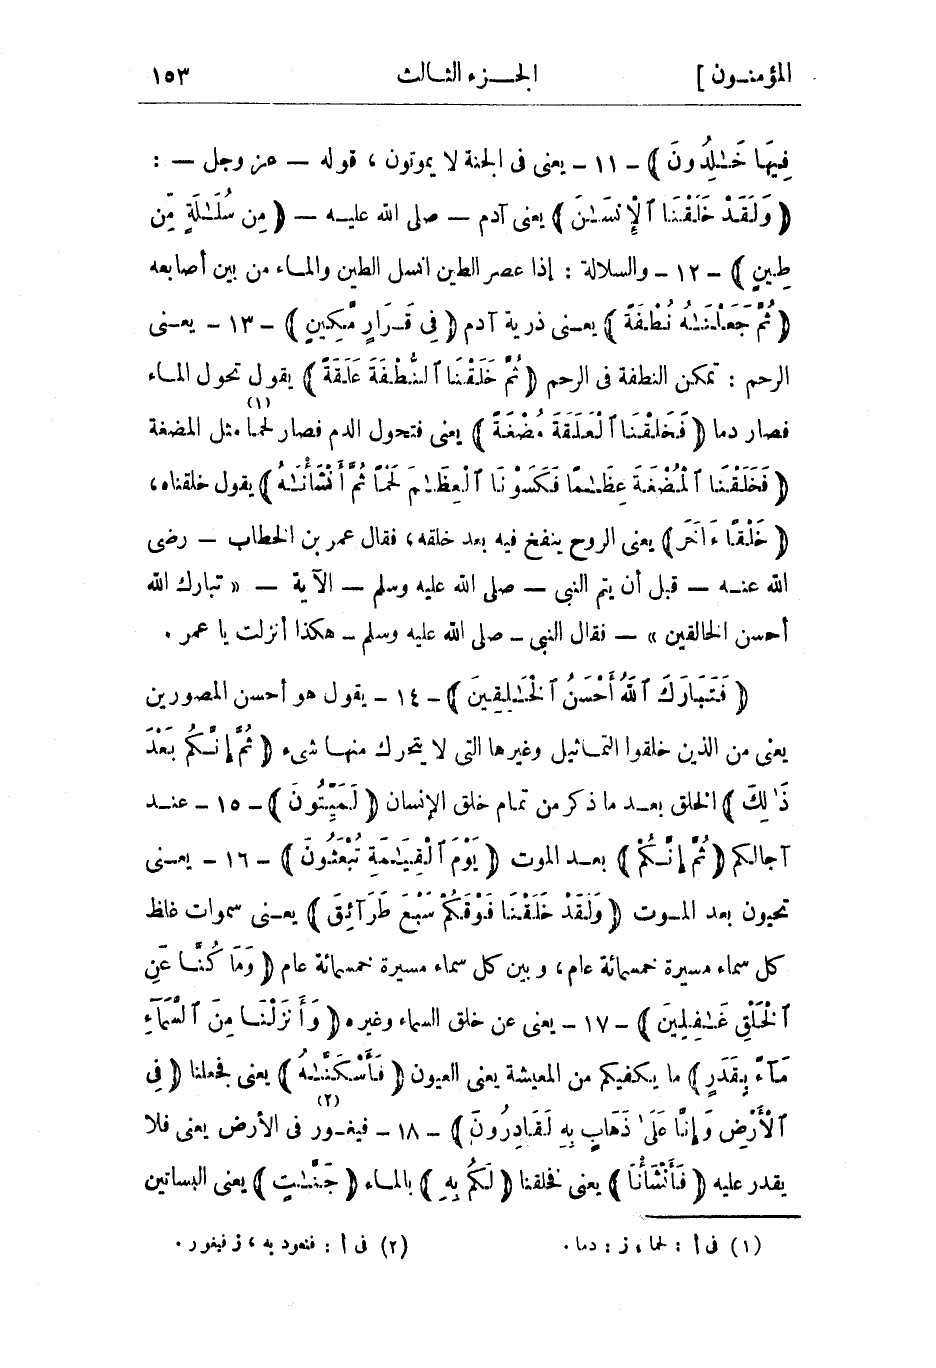 المؤمنـون ] الجـــزء الثـالث ١٥٣
فِيهَا خَـٰلِدُونَ ) - ١١ - يعنى فى الجنة لا يموتون ، قوله — عز وجل — :
( وَلَقَدْ خَلَقْنَا ٱلْإِنسَـٰنَ ) يعنى آدم — صلى الله عليـه — ( مِن سُلَـٰلَةٍ مِّن
طِينٍ ) - ١٢ - والسلالة : إذا عصر الطين انسل الطين والمـاء من بين أصابعه
( ثُمَّ جَعَلْنَـٰهُ نُطْفَةً ) يعـنى ذرية آدم ( فِى قَـرَارٍ مَّكِينٍ ) - ١٣ - يعـنى
الرحم : تمكن النطفة فى الرحم ( ثُمَّ خَلَقْنَا ٱلنُّطْفَةَ عَلَقَةً ) يقول تحول المـاء
فصار دما ( فَخَلَقْنَا ٱلْعَلَقَةَ مُضْغَةً ) يعنى فتحول الدم فصار لحما (١) مثل المضغة
( فَخَلَقْنَا ٱلْمُضْغَةَ عِظَـٰمًا فَكَسَوْنَا ٱلْعِظَـٰمَ لَحْمًا ثُمَّ أَنشَأْنَـٰهُ ) يقول خلقناه ،
( خَلْقًا ءَاخَرَ ) يعنى الروح ينفخ فيه بعد خلقه ، فقال عمر بن الخطاب — رضى
الله عنـه — قبل أن يتم النبى — صلى الله عليه وسلم — الآية — « تبارك الله
أحسن الخالقين » — فقال النبى — صلى الله عليه وسلم — هكذا أنزلت يا عمر .
( فَتَبَارَكَ ٱللَّهُ أَحْسَنُ ٱلْخَـٰلِقِينَ ) - ١٤ - يقول هو أحسن المصورين
يعنى من الذين خلقوا التمـاثيل وغيرها التى لا يتحرك منهـا شىء ( ثُمَّ إِنَّـكُم بَعْدَ
ذَٰلِكَ ) الخلق بعـد ما ذكر من تمام خلق الإنسان ( لَمَيِّتُونَ ) - ١٥ - عنـد
آجالكم ( ثُمَّ إِنَّـكُمْ ) بعـد الموت ( يَوْمَ ٱلْقِيَـٰمَةِ تُبْعَثُونَ ) - ١٦ - يعـنى
تحيون بعد المـوت ( وَلَقَدْ خَلَقْنَا فَوْقَكُمْ سَبْعَ طَرَآئِقَ ) يعـنى سموات غلظ
كل سماء مسيرة خمسمائة عام ، و بين كل سماء مسيرة خمسمائة عام ( وَمَا كُنَّـا عَنِ
ٱلْخَلْقِ غَـٰفِلِينَ ) - ١٧ - يعنى عن خلق السماء وغيره ( وَأَنزَلْنَـا مِنَ ٱلسَّمَآءِ
مَآءً بِقَدَرٍ ) ما يكفيكم من المعيشة يعنى العيون ( فَأَسْكَنَّـٰهُ ) يعنى فجعلنا ( فِى
ٱلْأَرْضِ وَإِنَّا عَلَىٰ ذَهَابٍ بِهِ لَقَادِرُونَ ) - ١٨ - فيغـور (٢) فى الأرض يعنى فلا
يقدر عليه ( فَأَنشَأْنَا ) يعنى فخلقنا ( لَكُم بِهِ ) بالمـاء ( جَنَّـٰتٍ ) يعنى البساتين
(١) فى أ : لحما ، ز : دما . (٢) فى أ : فنعود به ، ز فيغور .